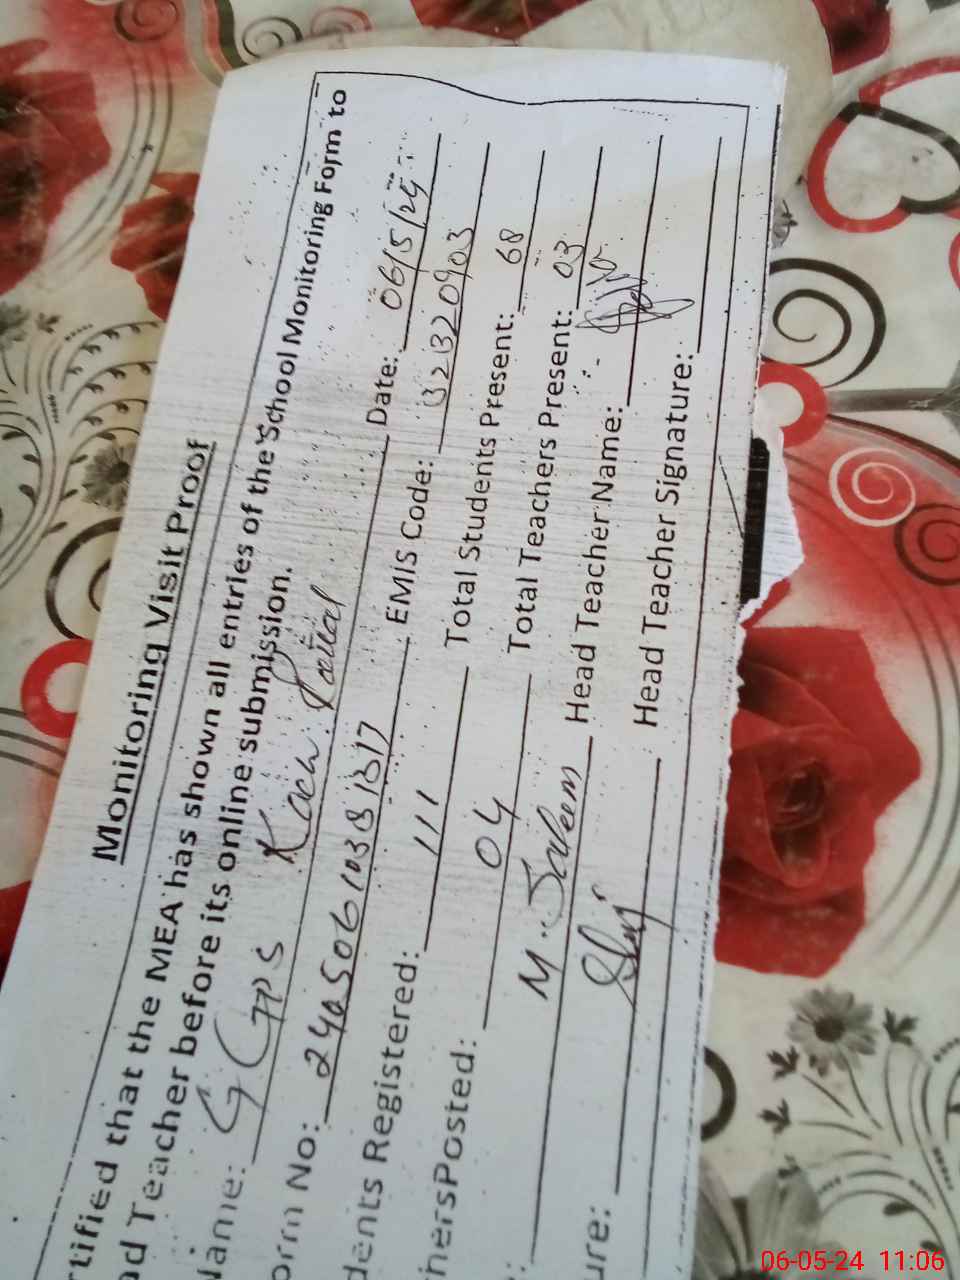 Monitoring Visit Proof
rtified that the MEA has shown all entries of the School Monitoring Form to
ad Teacher before its online submission.
Name: GGPS Kach Date: 06/5/24
orm No: 24050610381317 EMIS Code: 32320903
dents Registered: 111 Total Students Present: 68
hersPosted: 04 Total Teachers Present: 03
: M. Saleem Head Teacher Name:
ure: Head Teacher Signature:
06-05-24 11:06